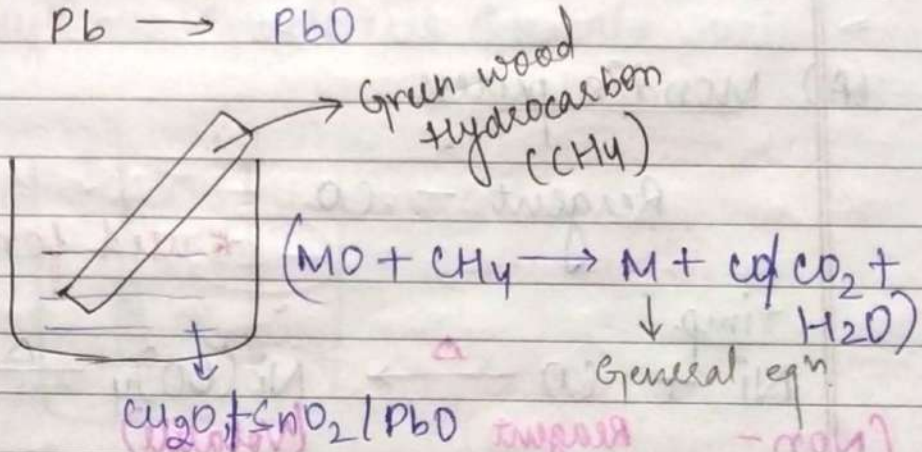 Pb → PbO
Green wood
Hydrocarbon
(CH4)
(MO + CH4 → M + CO/CO2 +
H2O)
↓
General eqn
Cu2O/SnO2/PbO
Reagent